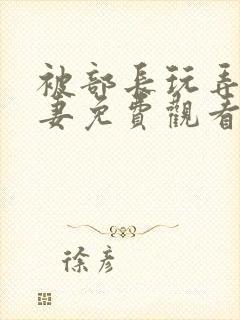 被部長玩弄
妻免費觀看
徐彥